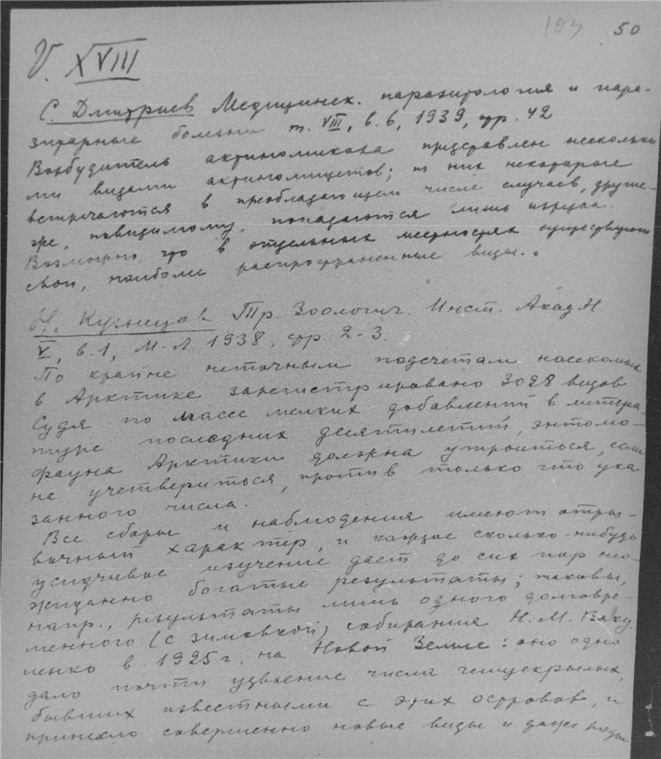 103 50
V. XVIII
С. Дмитриев Медицинск. паразитология и пара-
зитарные болезни т. VIII, в. 6, 1939, стр. 42
Возбудитель актиномикоза представлен нескольки
ми видами актиномицетов; из них некоторые
встречаются в преобладающем числе случаев, другие
же, повидимому, попадаются лишь изредка.
Возможно, что в отдельных местностях существуют
свои, наиболе распространенные виды.
Н. Кузнецов Тр. Зоологич. Инст. Акад. Н.
V, в. 1, М.-Л. 1938, стр. 2-3.
По крайне неточным подсчетам насекомых
в Арктике зарегистрировано 3028 видов
Судя по массе мелких добавлений в литера
туре последних десятилетий, энтомо-
фауна Арктики должна утроиться, если
не учетвериться, против только что ука
занного числа.
Все сборы и наблюдения имеют отры-
вочный характер, и каждое сколько-нибудь
усидчивое изучение дает до сих пор нео-
жиданно богатые результаты; таковы,
напр., результаты лишь одного долговре-
менного (с зимовкой) собирания Н. М. Баку
ленко в 1925 г. на Новой Земле: оно одно
дало почти удвоение числа чешуекрылых,
бывших известными с этих островов, и
принесло совершенно новые виды и даже роды